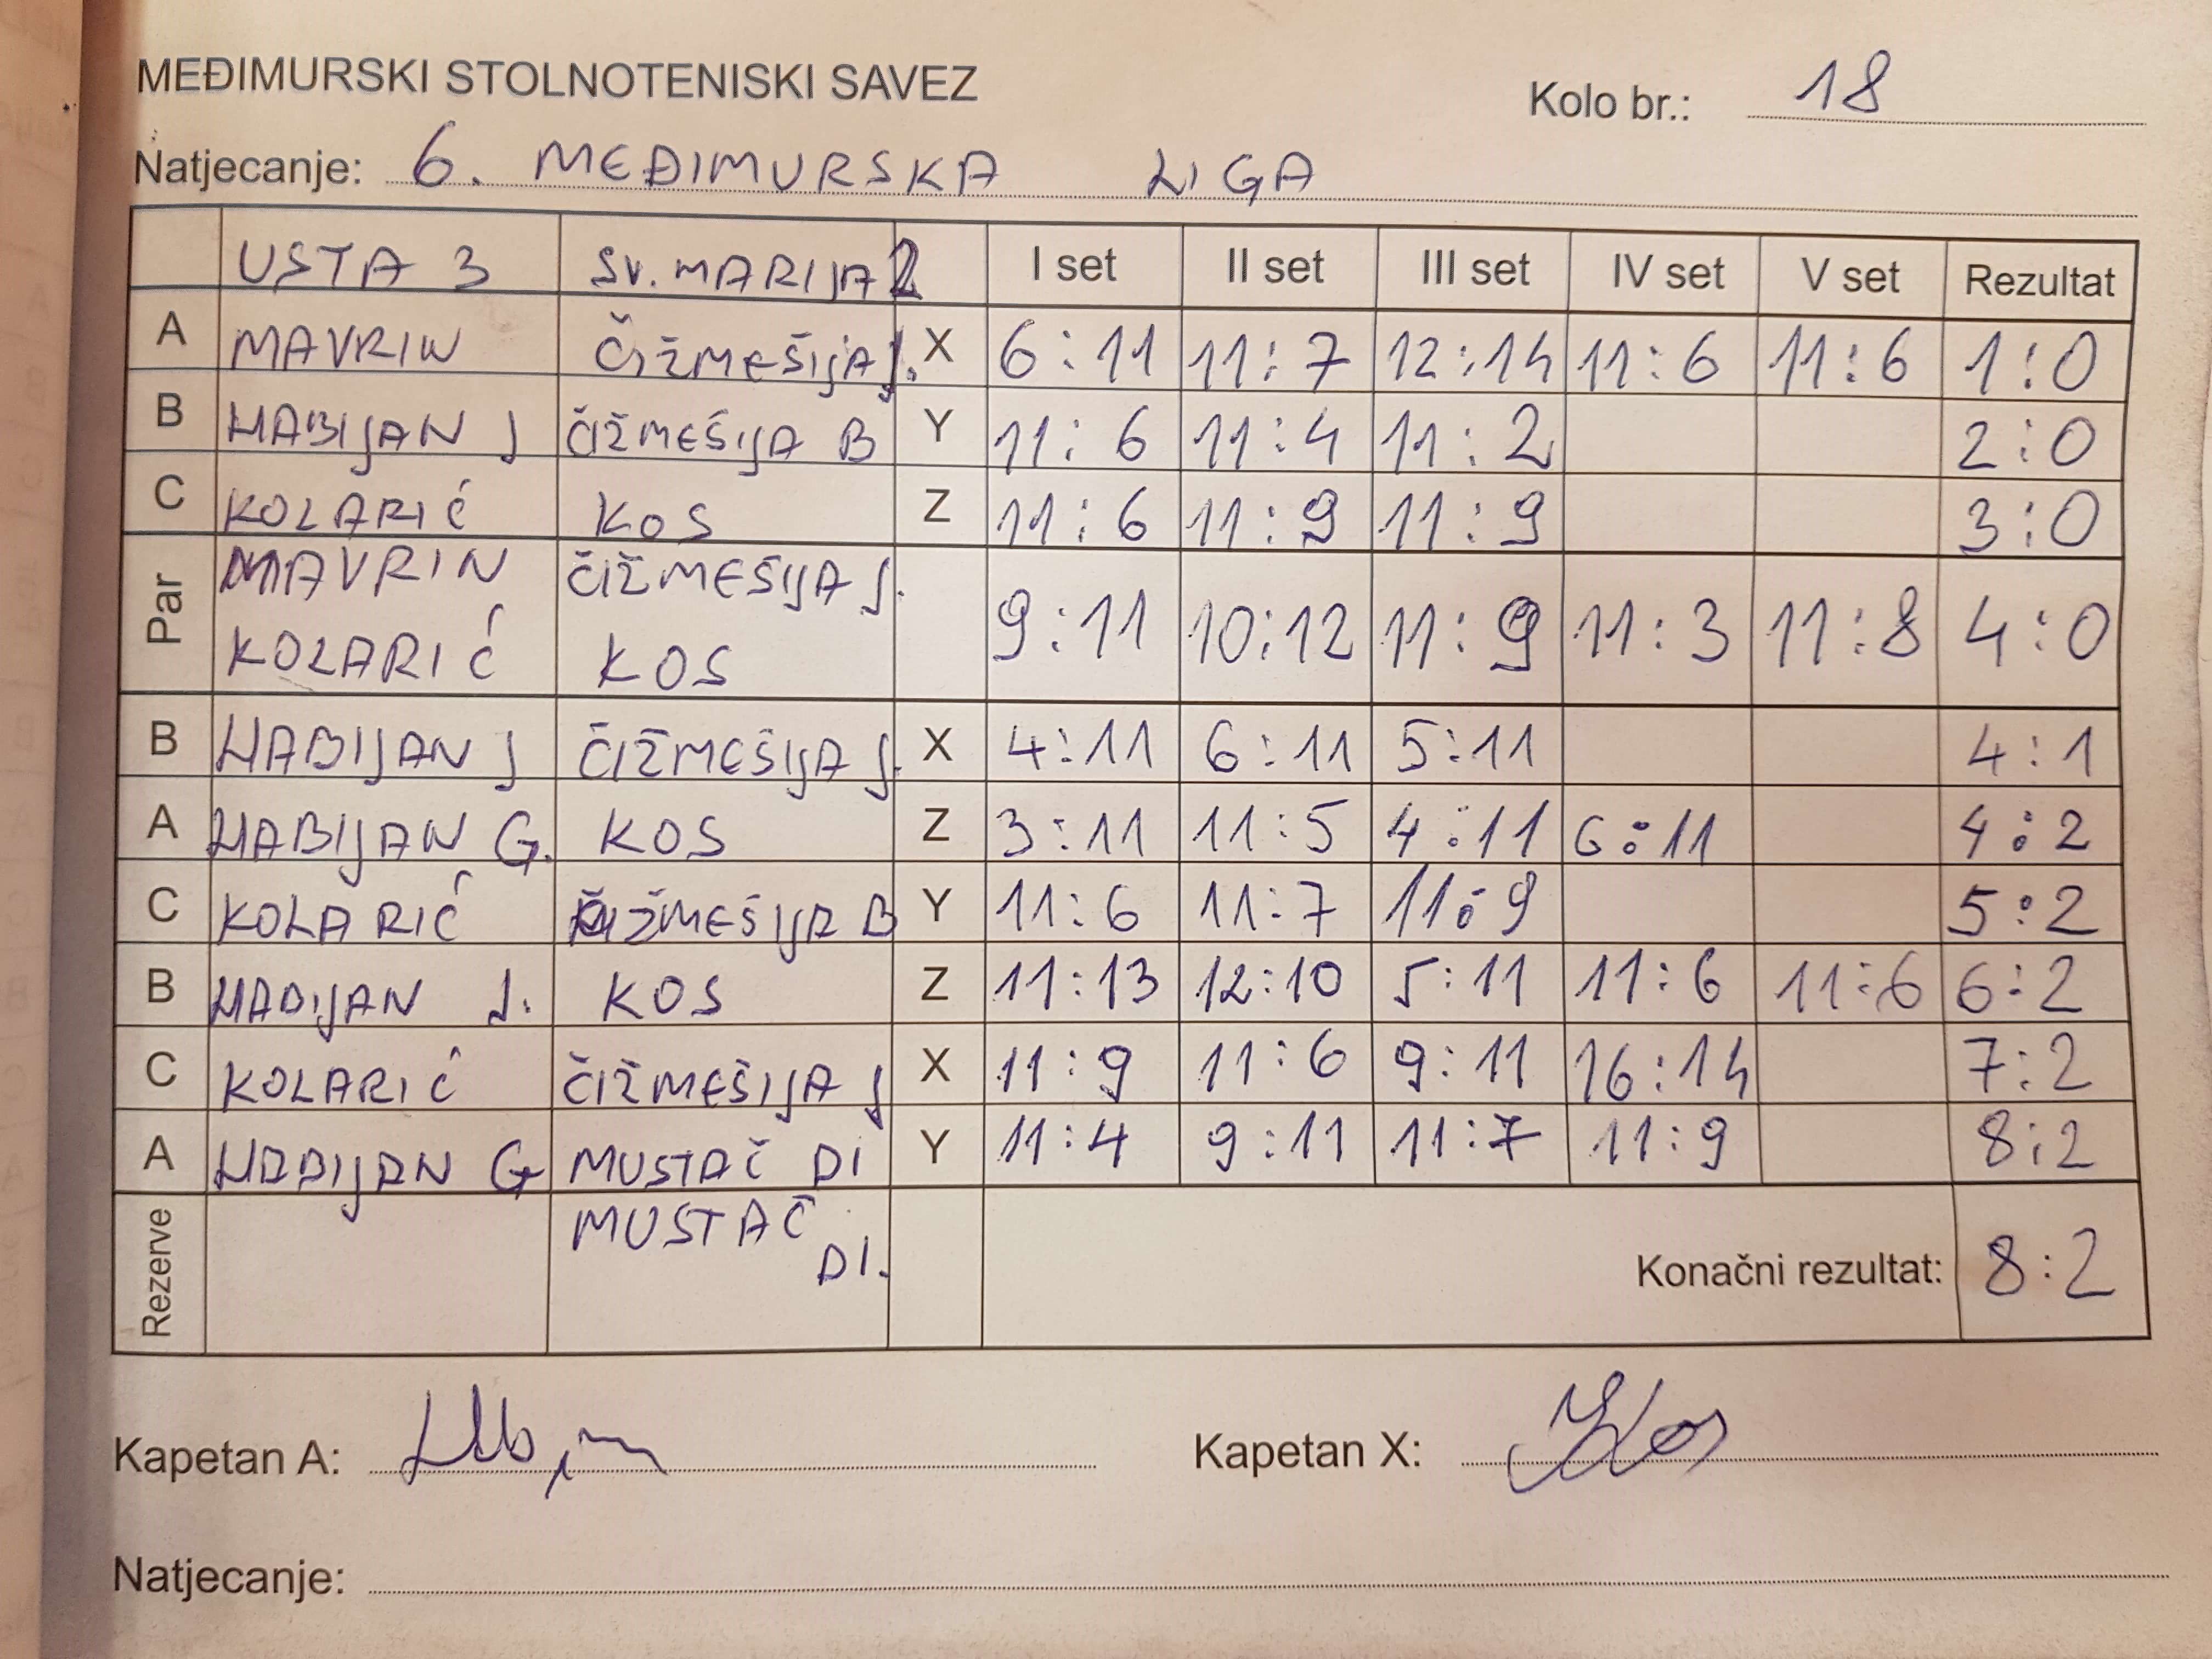 MEĐIMURSKI STOLNOTENISKI SAVEZ
Kolo br.: 18
Natjecanje: 6. MEĐIMURSKA LIGA
USTA 3 SV. MARIJA 2 I set II set III set IV set V set Rezultat
A MAVRIN ČIŽMEŠIJA J. X 6:11 11:7 12:14 11:6 11:6 1:0
B HABIJAN J ČIŽMEŠIJA B Y 11:6 11:4 11:2 2:0
C KOLARIĆ KOS Z 11:6 11:9 11:9 3:0
Par MAVRIN ČIŽMEŠIJA J. 9:11 10:12 11:9 11:3 11:8 4:0
KOLARIĆ KOS
B HABIJAN J ČIŽMEŠIJA J. X 4:11 6:11 5:11 4:1
A HABIJAN G. KOS Z 3:11 11:5 4:11 6:11 4:2
C KOLARIĆ ČIŽMEŠIJA B Y 11:6 11:7 11:9 5:2
B HABIJAN J. KOS Z 11:13 12:10 5:11 11:6 11:6 6:2
C KOLARIĆ ČIŽMEŠIJA J X 11:9 11:6 9:11 16:14 7:2
A HABIJAN G MUSTAČ DI Y 11:4 9:11 11:7 11:9 8:2
Rezerve MUSTAČ DI. Konačni rezultat: 8:2
Kapetan A: Kapetan X: Kos
Natjecanje: